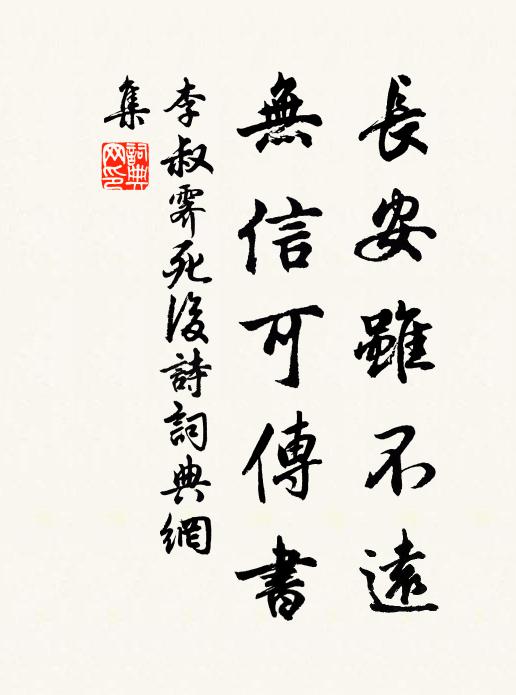 長安雖不遠
無信可傳書
李叔霽死後詩詞典網
集
詞典網印